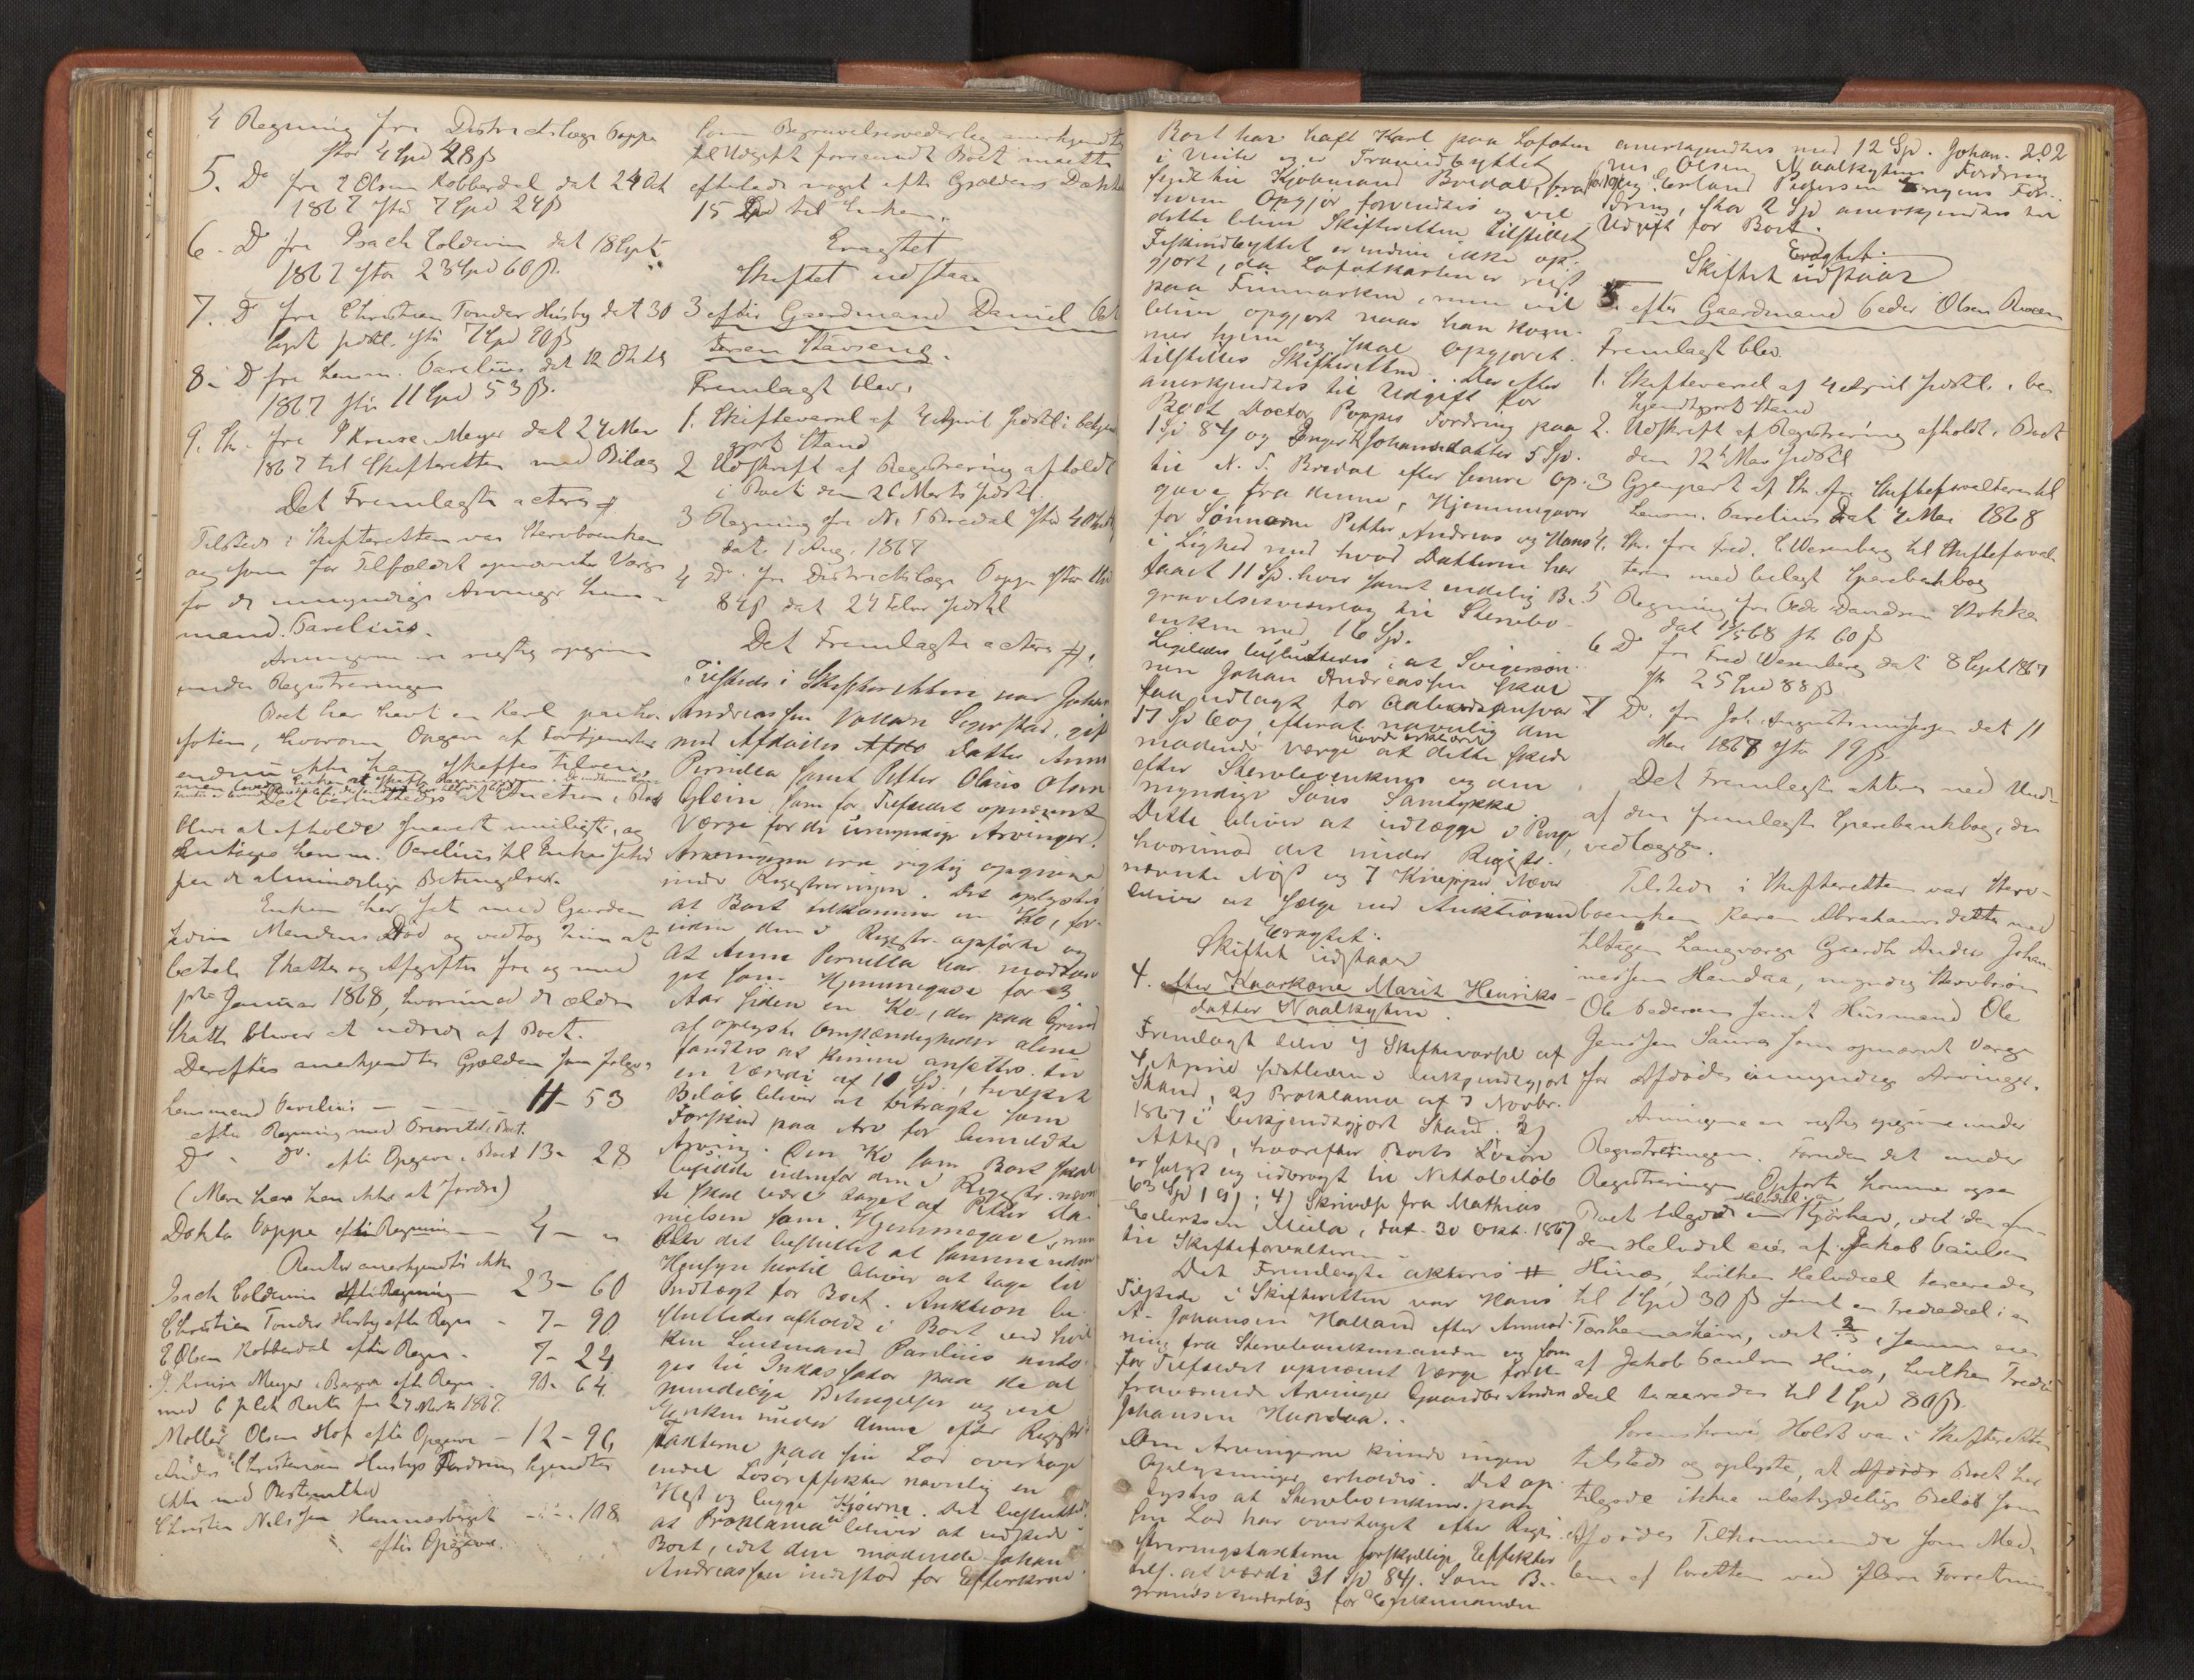 4 Regning fra Districtslæge Poppe
stor 4 Spd 48 ß
5. Do fra E Olsen Kobberdal dat 24 Oct
1867 stor 7 Spd 24 ß
6. Do fra Isach Coldevin dat 18 Sept
1867 stor 23 Spd 60 ß.
7. Do fra Christian Tonder Husby dat 30
Sept stor 7 Spd 90 ß
8. Do fra Lensm. Parelius dat 12
1867 stor 11 Spd 53 ß.
9. Skr. fra Kruse Meyer dat 24 Mai
1867 til Skifteretten med Bilag
Det Fremlagte acteres
Tilstede i Skifteretten var Stervboenken
og som for Tilfældet opnævnte Værge
for de umyndige Arvinger Lens-
mand Parelius.
Arvingerne ere rigtig opgivne
under Registreringen
Boet har havt en Karl paa Lo-
foten, hvorom Opgave af Fortjenesten
endnu ikke kan skaffes tilveie,
Det besluttedes at Auction i Boet
bliver at afholde snarest muligt, og
antages Lensm. Parelius til Inkassator
paa de almindelige Betingelser.
Enken har sat med Gaarden
siden Mandens Død og vedtog hun at
betale Skatter og Afgifter fra og med
Januar 1868, hvorimod de ældre
Skatter bliver at udrede af Boet.
Derefter anerkjendtes Gjælden som følger
Lensmand Parelius — 11 - 53
efter Regning med Prioritet i Boet.
Do - Do. efter Opgave i Boet 13 - 28
(Mere har han ikke at fordre)
Doktor Poppe efter Regning — 4 - "
Renter anerkjendtes ikke
Isach Coldevin efter Regning 23 - 60
Christian Tonder Husby efter Regn - 7 - 90
E Olsen Kobberdal efter Regn. - 7 - 24
J. Kruse Meyer i Bergen efter Regn. 90 - 64
med 6 pCt Rente fra 24 1867.
Møller Olsen Hof efter Opgave - 12 - 96
Anders Christensen Husbys Fordring kjendtes
ikke med Bestemthed
Christen Nilssen - 108
efter Opgave.
som Begravelsesvederlag anerkjendtes
til Udgift forsaavidt Boet maatte
efterlade noget efter Gjældens Dækkelse
15 Spd til Enken.
Eragtet
Skiftet udstaar
3 efter Gaardmand Daniel
Stavseng.
Fremlagt blev.
1. Skiftevarsel af 4 April sidstl. i bekjendt-
gjort Stand
2 Udskrift af Registrering afholdt
i Boet den 26 Marts sidstl.
3 Regning fra N. T Bredal stor
dat. 1 Aug. 1867
4 Do. fra Districtslæge Poppe stor
84 ß dat 24 Febr sidstl
Det Fremlagte acteres
Tilstede i Skifteretten var Johan
Andreassen Segerstad, gift
med Afdødes Datter Anna
Pernilla samt Petter Olaus Olsen
Glein som for Tilfældet opnævnt
Værge for de umyndige Arvinger.
Arvingerne ere rigtig opgivne
under Registreringen. Det oplystes
at Boet tilkommer en Ko, for-
uden den i Registr. opførte og
at Anna Pernilla har modtaget
som Hjemmegave for 3
Aar siden en Ko, der paa Grund
af oplyste Omstændigheder alene
fandtes at kunne ansættes til
en Værdi af 10 Spd., hvilket
Beløb bliver at betragte som
Forskud paa Arv for bemeldte
Arving. Den Ko som Boet skal
besidde udenfor den i Registr. nævn-
te skal være taget af Petter Da-
nielsen som Hjemmegave, men
blev det besluttet at samme uden
Hensyn hertil bliver at tage til
Indtægt for Boet. Auktion be-
sluttedes afholdt i Boet ved hvil-
ken Lensmand Parelius anta-
ges til Inkassator paa de al-
mindelige Betingelser og vil
Enken under denne efter Registr.
Taxterne paa sin Lod overtage
endel Løsøreffekter navnlig en
Hest og begge Kjørne. Det besluttedes
at Proklama bliver at udstede i
Boet, idet den mødende Johan
Andreassen indestod for Efterkrav
Boet har havt Karl paa Lofoten
i Vinter og er Tranudbyttet
sendt til Kjøbmand Bredal, fra
hvem Opgjør forventes og vil
dette blive Skifteretten tilstillet
Fiskeudbyttet er endnu ikke op-
gjort, da Lofotkarlen er reist
paa Finmarken, men vil
blive opgjort naar han kom-
mer hjem og skal Opgjøret
tilstilles Skifteretten. Derefter
anerkjendtes til Udgift for
Boet Doctor Poppes Fordring paa
1 Spd 84 ß og Johansdatter 5 Spd.
til N. T. Bredal efter senere Op-
gave fra denne, Hjemmegaver
for Sønnerne Petter Andreas og Hans
i Lighed med hvad Datteren har
faaet 11 Spd. hver samt endelig Be-
gravelsesvederlag til Stervbo-
enken med 16 Spd.
Ligeledes besluttedes, at Svigersøn-
nen Johan Andreassen skal
faa udlagt for Aabodsansvar
17 Spd efterat navnlig den
mødende Værge havde erklæret at dette skede
efter Stervboenkens og den
myndige Søns Samtykke
Dette bliver at udlægge i Penge,
hvorimod det under Registr.
nævnte Nøst og 7 Knipper Næver
bliver at sælge ved Auktionen
Eragtet:
Skiftet udstaar
4. efter Kaarkone Marit Henriks-
datter Naalkyten
Fremlagt blev 1) Skiftevarsel af
4 April sidstleden i bekjendtgjort
Stand, 2) Proklama af 7 Novbr.
1867 i bekjendtgjort Stand. 3)
Attest, hvorefter Boets Løsøre
er solgt og udbragt til Nettobeløb
63 Spd 19 ß; 4) Skrivelse fra Mathias
Meela, dat. 30 Okt. 1867
til Skifteforvalteren.
Det Fremlagte akteres
Tilstede i Skifteretten var Hans
A. Johansen Halland efter Anmod-
ning fra Stervboenkemanden og som
for Tilfældet opnævnt Værge for de
fraværende Arvinger Gaardbr Anders
Johansen Haardaa.
Om Arvingerne kunde ingen
Oplysninger erholdes. Det op-
lystes at Stervboenkem. paa
sin Lod har overtaget efter Regi-
streringstaxterne forskjellige Effekter
tils. at værdi 31 Spd 84 ß. Som Be-
gravelsesvederlag for Enkemanden
anerkjendtes med 12 Spd. Johan-
nes Olsen Naalkytens Fordring
202
Erland Pedersen For-
dring, stor 2 Spd anerkjendtes til
Udgift for Boet.
Eragtet.
Skiftet udstaar
5. efter Gaardmand Peder Olsen
Fremlagt blev.
1. Skiftevarsel af 4 April sidstl. i be-
kjendtgjort Stand
2. Udskrift af Registrering afholdt i Boet
den 12te Mai sidstl
3 Gjenpart af Skr. fra Skifteforvalteren til
Lensm. Parelius dat 4 Mai 1868
4. Skr. fra Fred. C Wesenberg til Skifteforval-
teren med bilagt Sparebankbog
5 Regning fra Peder Stokka
dat 60 ß
6 Do fra Fred Wesenberg dat 8 Sept 1867
st 25 Spd 88 ß
7 Do. fra Joh. Augustinussen dat 11
Mai 1868 stor 19 ß.
Det Fremlagte akteres med Und-
af den fremlagte Sparebankbog, der
vedlægges.
Tilstede i Skifteretten var Sterv-
boenken Karen Abrahamsdatter med
tiltagen Laugværge Gaardbr Anders Johan-
nessen Hamdaa, myndig Stervbosøn
Ole Pedersen samt Husmand Ole
Jensen Saura som opnævnt Værge
for Afdødes umyndige Arvinger.
Arvingerne ere rigtig opgivne under
Registreringen. Foruden det under
Registreringen Opførte kommer ogsaa
Boet tilgode Halvdel i en Kjørken, idet den an-
den Halvdel eies af Jakob Paulsen
Hinæs, hvilken Halvdeel taxeredes
til 1 Spd 30 ß samt en Trediedeel i en
Tærskemaskin, idet 2/3 i samme eies
af Jakob Paulsen Hinæs, hvilken Tredie-
deel taxeredes til 1 Spd 80 ß.
Sorenskriver Holst var i Skifteretten
tilstede og oplyste, at Boet har
tilgode ikke ubetydelige Beløb som
Afdødes Tilkommende som Med-
lem af Retten ved flere Forretnin-